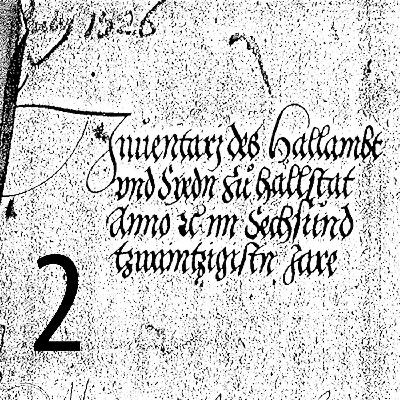 1526
Inuentarj des Hallambt
vnd Siedn zu Hallstat
Anno ꝛc im Sechsund
tzwaintzigistn Jare
2